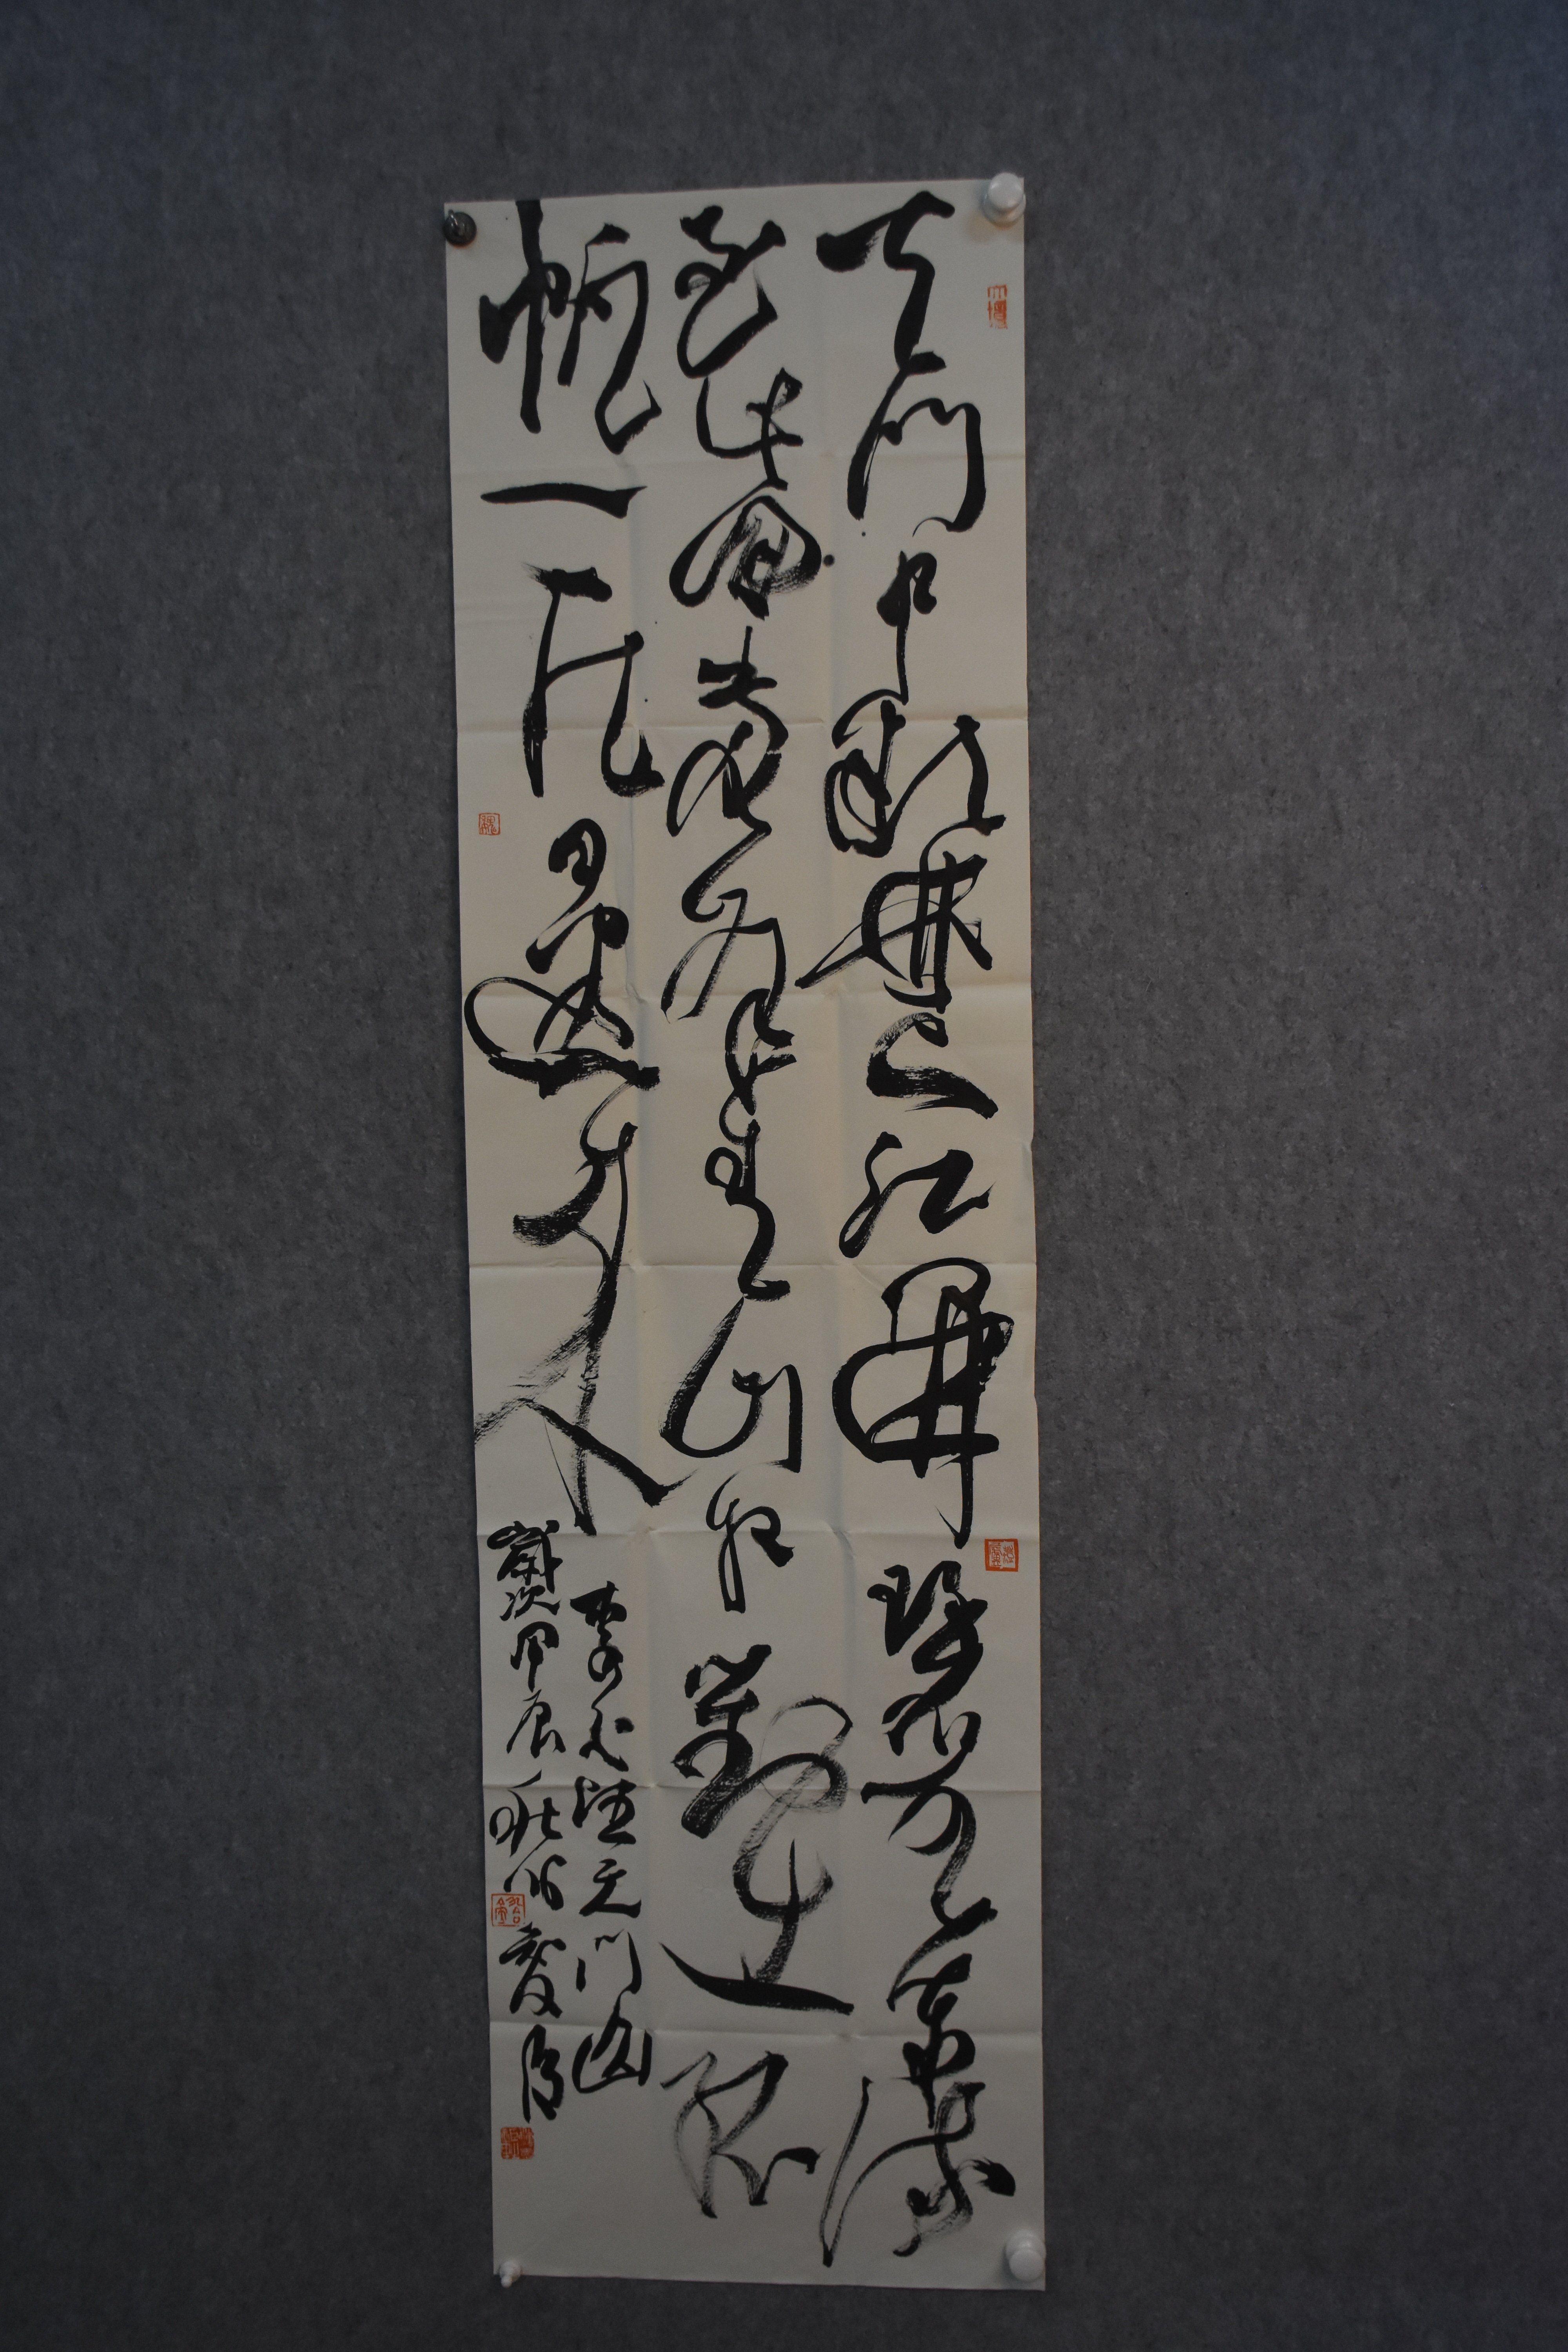 天門中斷楚江開碧水東流
至此回兩岸青山相對出孤
帆一片日邊來
李白望天門山
歲次甲辰秋